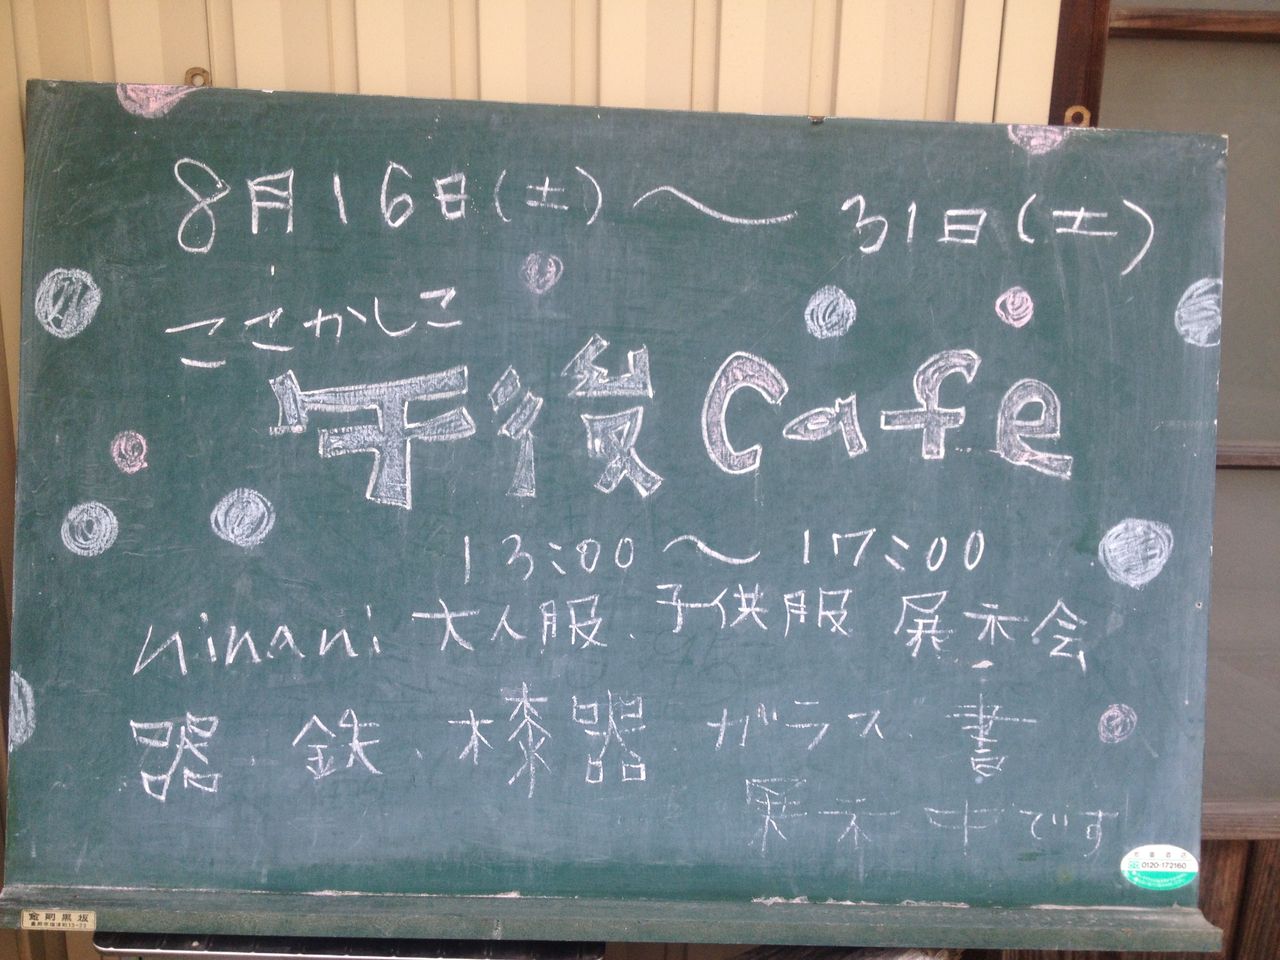 8月16日(土)〜31日(土)
ここかしこ
午後Cafe
13:00〜17:00
ninani 大人服、子供服 展示会
器 鉄、漆器 ガラス、書
展示中です
0120-172160
金剛黒板